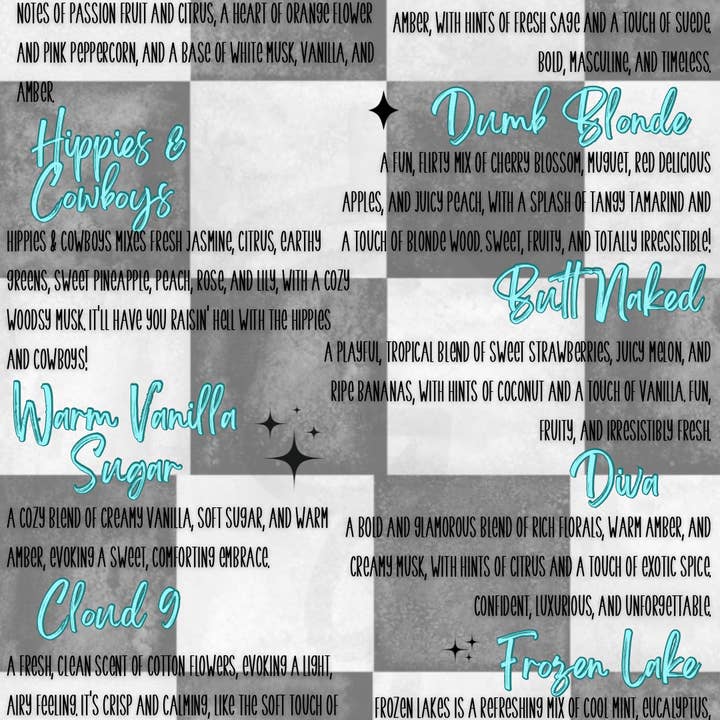 NOTES OF PASSION FRUIT AND CITRUS, A HEART OF ORANGE FLOWER
AND PINK PEPPERCORN, AND A BASE OF WHITE MUSK, VANILLA, AND
AMBER.
Hippies &
Cowboys
HIPPIES & COWBOYS MIXES FRESH JASMINE, CITRUS, EARTHY
GREENS, SWEET PINEAPPLE, PEACH, ROSE, AND LILY, WITH A COZY
WOODSY MUSK. IT'LL HAVE YOU RAISIN' HELL WITH THE HIPPIES
AND COWBOYS!
Warm Vanilla
Sugar
A COZY BLEND OF CREAMY VANILLA, SOFT SUGAR, AND WARM
AMBER, EVOKING A SWEET, COMFORTING EMBRACE.
Cloud 9
A FRESH, CLEAN SCENT OF COTTON FLOWERS, EVOKING A LIGHT,
AIRY FEELING. IT'S CRISP AND CALMING, LIKE THE SOFT TOUCH OF
AMBER, WITH HINTS OF FRESH SAGE AND A TOUCH OF SUEDE.
BOLD, MASCULINE, AND TIMELESS.
Dumb Blonde
A FUN, FLIRTY MIX OF CHERRY BLOSSOM, MUGUET, RED DELICIOUS
APPLES, AND JUICY PEACH, WITH A SPLASH OF TANGY TAMARIND AND
A TOUCH OF BLONDE WOOD. SWEET, FRUITY, AND TOTALLY IRRESISTIBLE!
Butt Naked
A PLAYFUL, TROPICAL BLEND OF SWEET STRAWBERRIES, JUICY MELON, AND
RIPE BANANAS, WITH HINTS OF COCONUT AND A TOUCH OF VANILLA. FUN,
FRUITY, AND IRRESISTIBLY FRESH.
Diva
A BOLD AND GLAMOROUS BLEND OF RICH FLORALS, WARM AMBER, AND
CREAMY MUSK, WITH HINTS OF CITRUS AND A TOUCH OF EXOTIC SPICE.
CONFIDENT, LUXURIOUS, AND UNFORGETTABLE.
Frozen Lake
FROZEN LAKES IS A REFRESHING MIX OF COOL MINT, EUCALYPTUS,